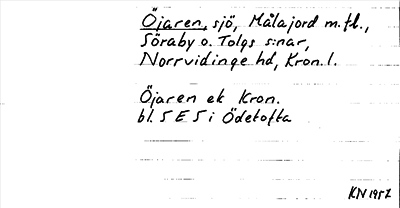 Öjaren, sjö, Målajord m.fl.,
Söraby o. Tolgs s:nar,
Norrvidinge hd, Kron. l.
Öjaren ek Kron.
bl. 5 E 5 i Ödetofta
KN 1957